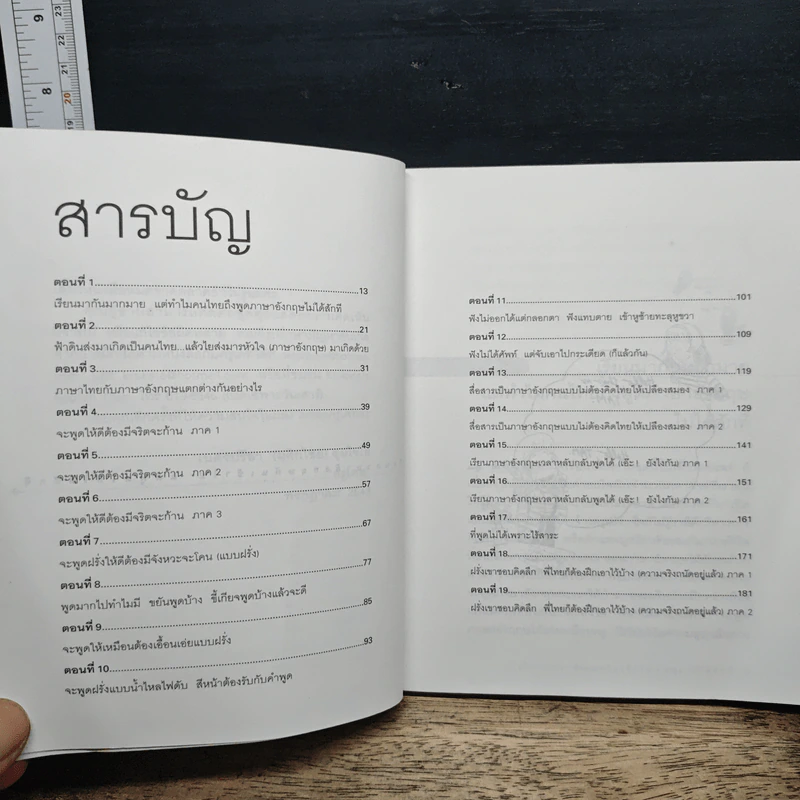 9
8
23
22
21
20
19
สารบัญ
ตอนที่ 1....................13
เรียนมากันมากมาย แต่ทำไมคนไทยถึงพูดภาษาอังกฤษไม่ได้สักที
ตอนที่ 2....................21
ฟ้าดินส่งมาเกิดเป็นคนไทย...แล้วไยส่งมารหัวใจ (ภาษาอังกฤษ) มาเกิดด้วย
ตอนที่ 3....................31
ภาษาไทยกับภาษาอังกฤษแตกต่างกันอย่างไร
ตอนที่ 4....................39
จะพูดให้ดีต้องมีจริตจะก้าน ภาค 1
ตอนที่ 5....................49
จะพูดให้ดีต้องมีจริตจะก้าน ภาค 2
ตอนที่ 6....................57
จะพูดให้ดีต้องมีจริตจะก้าน ภาค 3
ตอนที่ 7....................67
จะพูดฝรั่งให้ดีต้องมีจังหวะจะโคน (แบบฝรั่ง)
ตอนที่ 8....................77
พูดมากไปทำไมมี ขยันพูดบ้าง ขี้เกียจพูดบ้างแล้วจะดี
ตอนที่ 9....................85
จะพูดให้เหมือนต้องเอื้อนเอ่ยแบบฝรั่ง
ตอนที่ 10....................93
จะพูดฝรั่งแบบน้ำไหลไฟดับ สีหน้าต้องรับกับคำพูด
ตอนที่ 11....................101
ฟังไม่ออกได้แต่กลอกตา ฟังแทบตาย เข้าหูซ้ายทะลุหูขวา
ตอนที่ 12....................109
ฟังไม่ได้ศัพท์ แต่จับเอาไปกระเดียด (ก็แล้วกัน)
ตอนที่ 13....................119
สื่อสารเป็นภาษาอังกฤษแบบไม่ต้องคิดไทยให้เปลืองสมอง ภาค 1
ตอนที่ 14....................129
สื่อสารเป็นภาษาอังกฤษแบบไม่ต้องคิดไทยให้เปลืองสมอง ภาค 2
ตอนที่ 15....................141
เรียนภาษาอังกฤษเวลาหลับกลับพูดได้ (เอ๊ะ! ยังไงกัน) ภาค 1
ตอนที่ 16....................151
เรียนภาษาอังกฤษเวลาหลับกลับพูดได้ (เอ๊ะ! ยังไงกัน) ภาค 2
ตอนที่ 17....................161
ที่พูดไม่ได้เพราะไร้สาระ
ตอนที่ 18....................171
ฝรั่งเขาชอบคิดลึก พี่ไทยก็ต้องฝึกเอาไว้บ้าง (ความจริงถนัดอยู่แล้ว) ภาค 1
ตอนที่ 19....................181
ฝรั่งเขาชอบคิดลึก พี่ไทยก็ต้องฝึกเอาไว้บ้าง (ความจริงถนัดอยู่แล้ว) ภาค 2